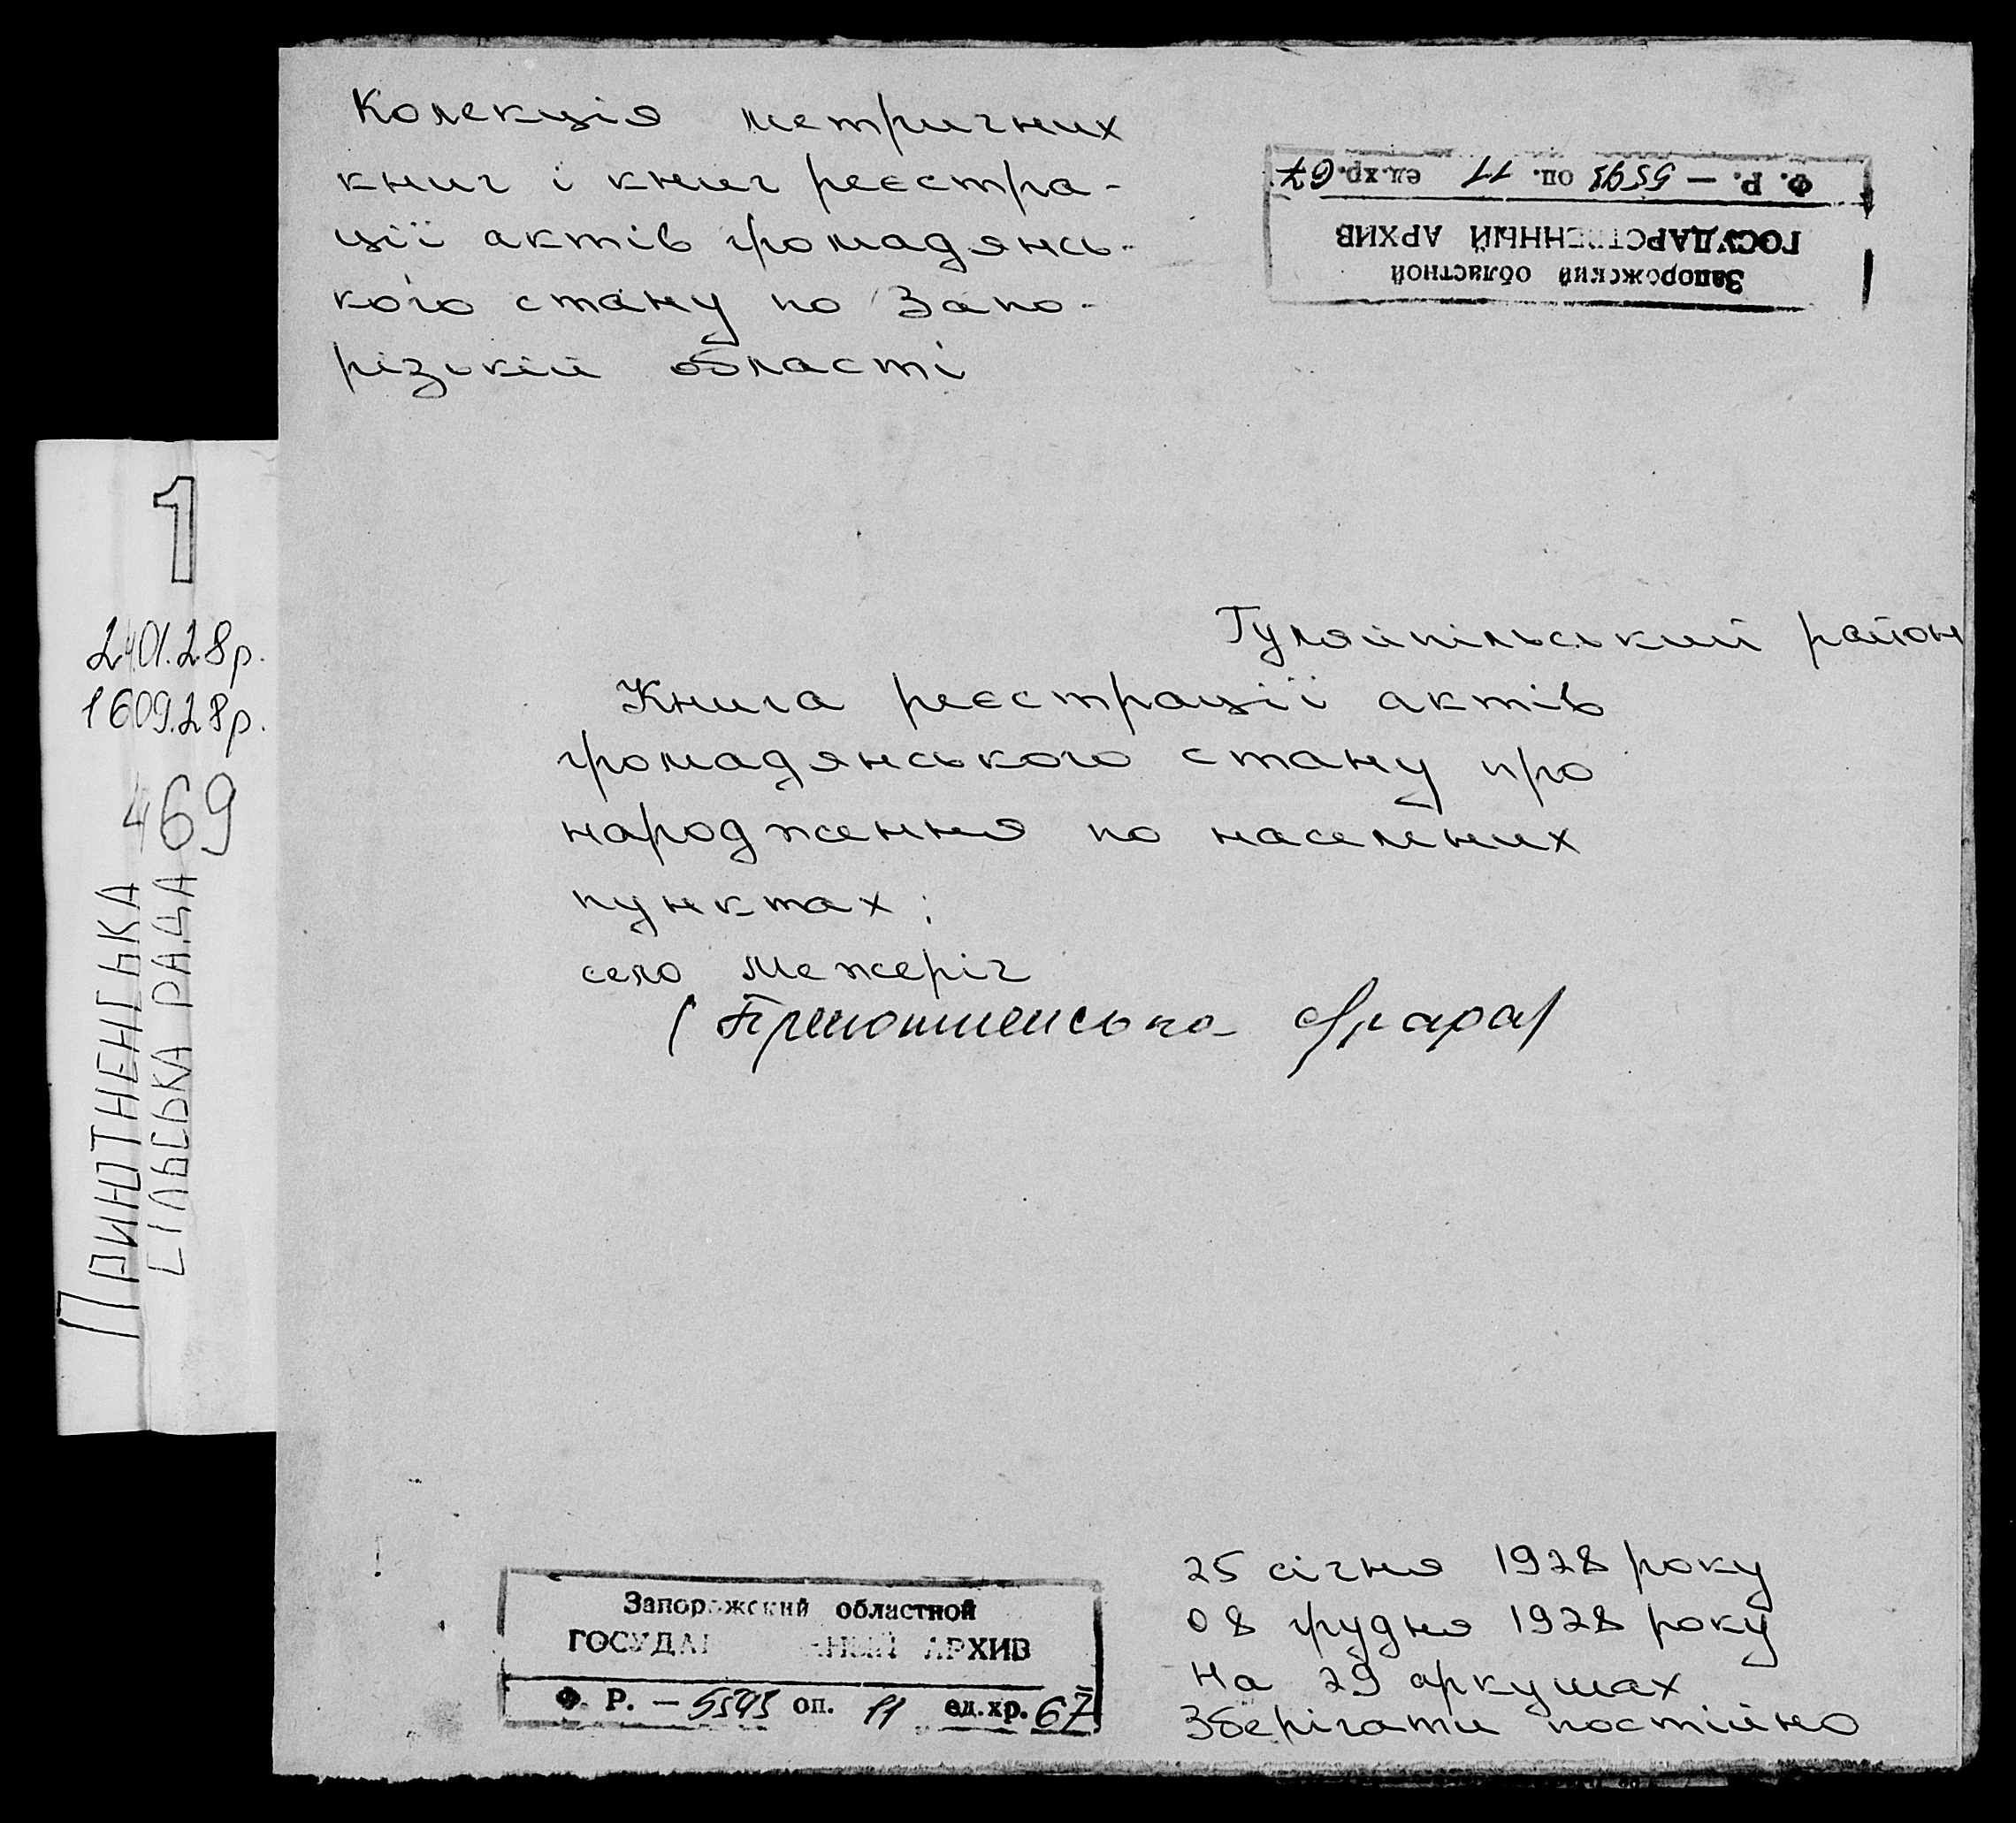 Колекція метричних
книг і книг реєстра-
ції актів громадянсь-
кого стану по Запо-
різькій області
Ф. Р. — 5593 оп. 11 ед.хр. 67
ГОСУДАРСТВЕННЫЙ АРХИВ
Запорожский областной
1
24.01.28р.
16.09.28р.
469
ПРИЮТНЕНСЬКА
СІЛЬСЬКА РАДА
Гуляйпільський район
Книга реєстрації актів
громадянського стану про
народження по населених
пунктах:
село Межеріч
(Приютненська
Запорожский областной
ГОСУДАРСТВЕННЫЙ АРХИВ
Ф. Р. — 5593 оп. 11 ед.хр. 67
25 січня 1928 року
08 грудня 1928 року
На 29 аркушах
Зберігати постійно